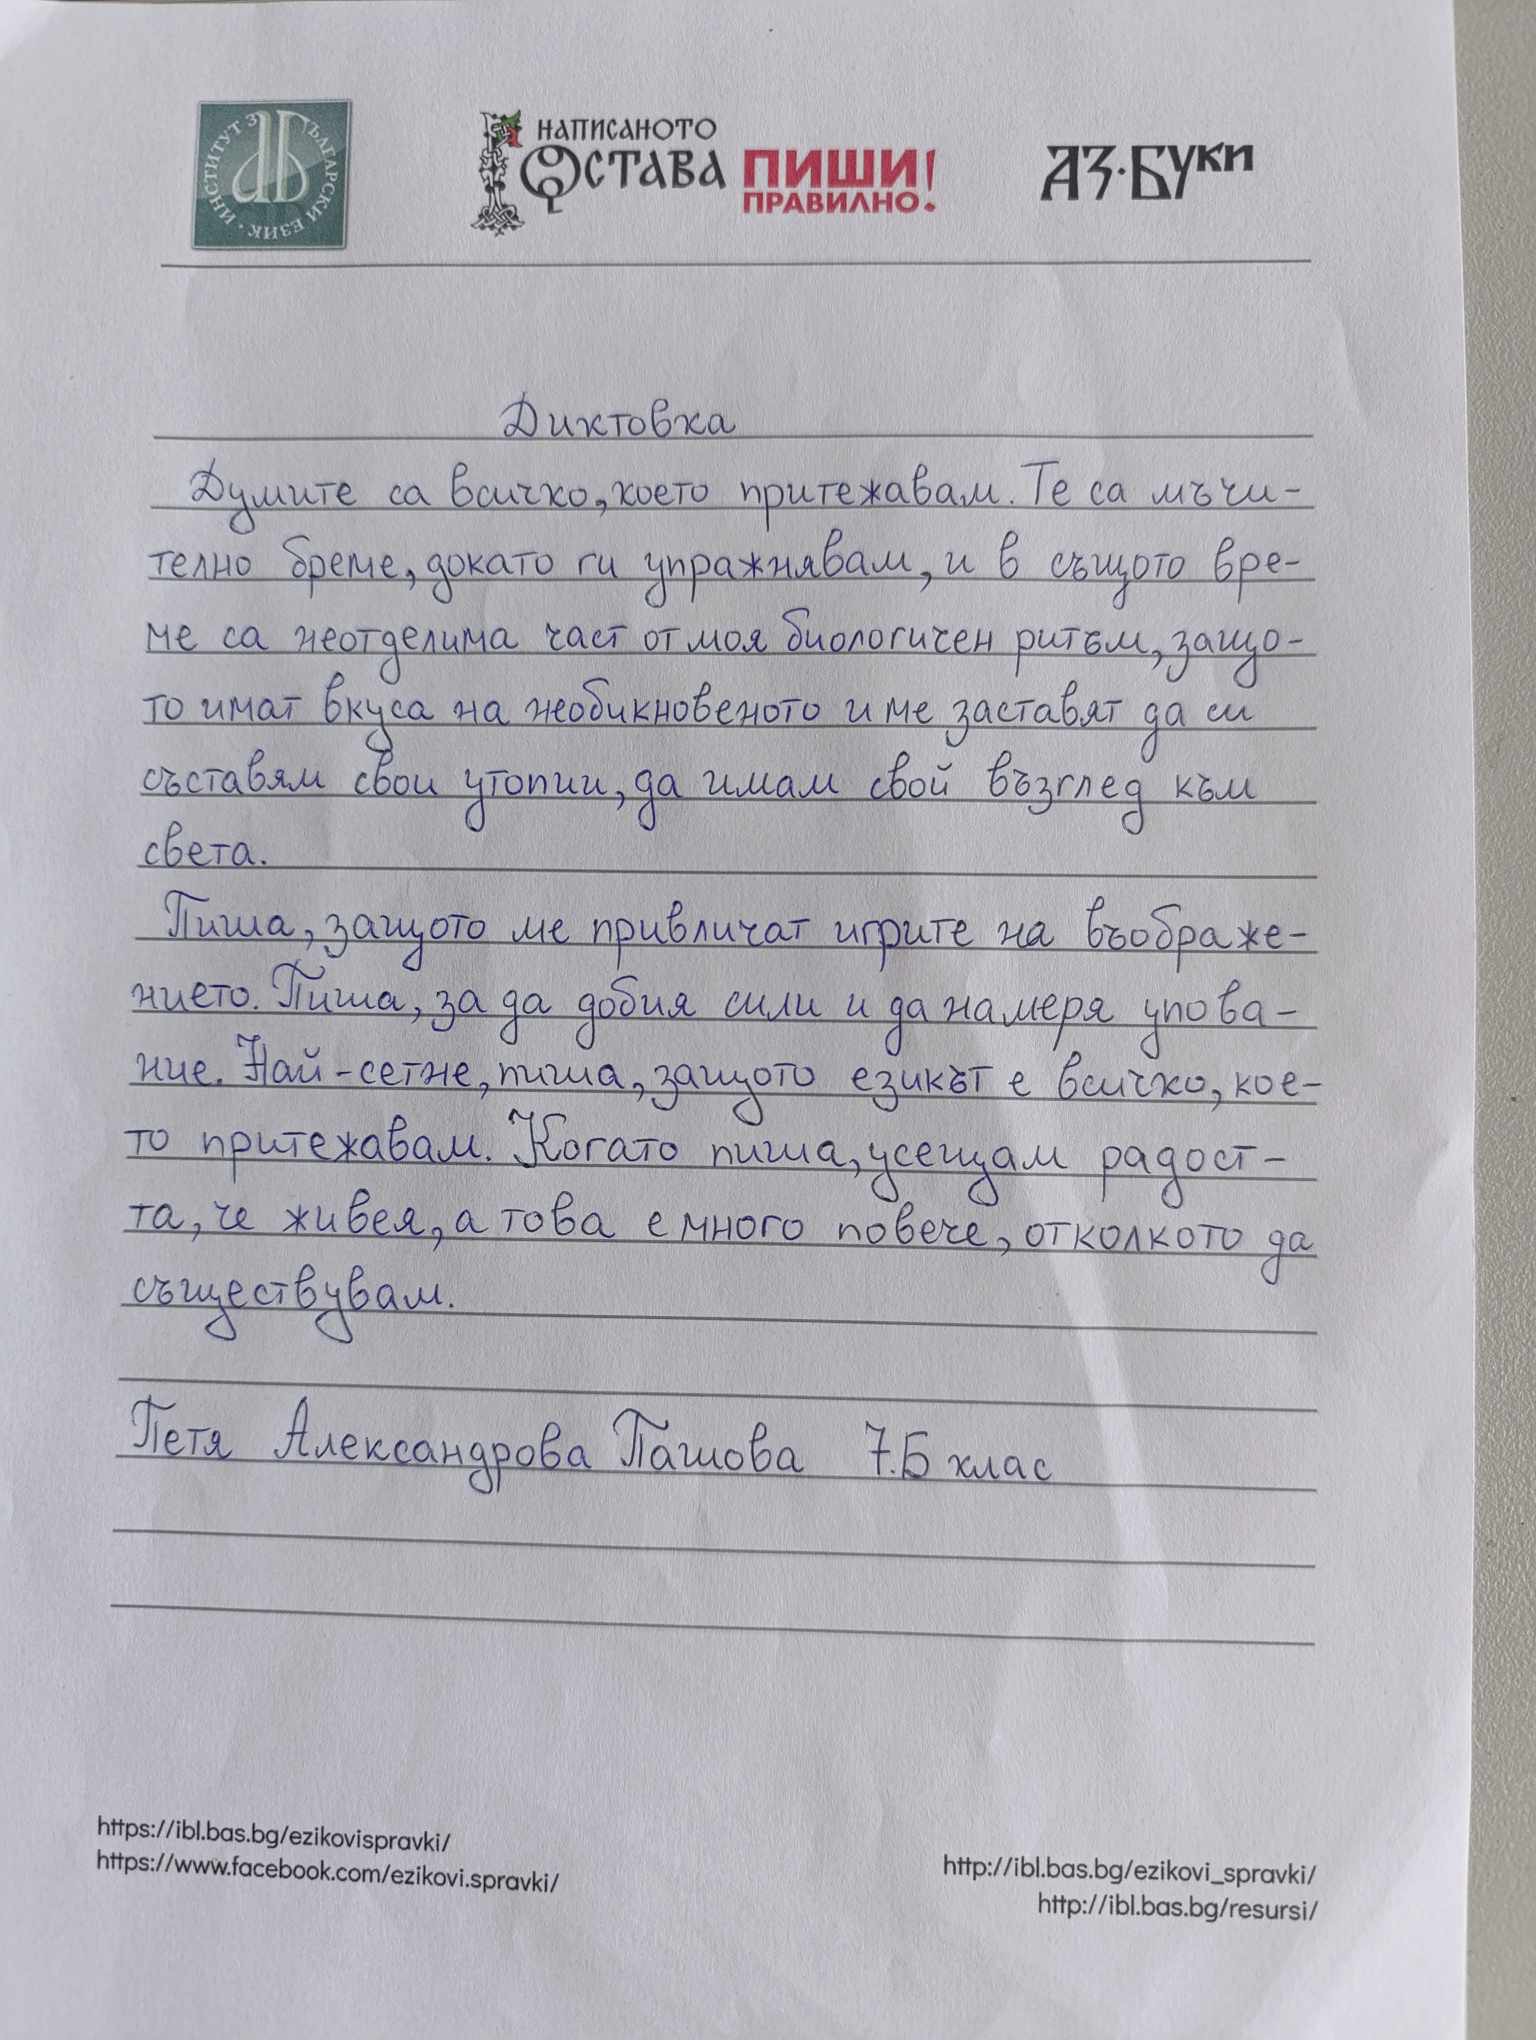 ИНСТИТУТ ЗА БЪЛГАРСКИ ЕЗИК
НАПИСАНОТО
ОСТАВА
ПИШИ
ПРАВИЛНО!
АЗ·БУКИ
Диктовка
Думите са всичко, което притежавам. Те са мъчи-
телно бреме, докато ги упражнявам, и в същото вре-
ме са неотделима част от моя биологичен ритъм, защо-
то имат вкуса на необикновеното и ме заставят да си
съставям свои утопии, да имам свой възглед към
света.
Пиша, защото ме привличат игрите на въображе-
нието. Пиша, за да добия сили и да намеря упова-
ние. Най-сетне, пиша, защото езикът е всичко, кое-
то притежавам. Когато пиша, усещам радост-
та, че живея, а това е много повече, отколкото да
съществувам.
Петя Александрова Пашова 7.Б клас
https://ibl.bas.bg/ezikovispravki/
https://www.facebook.com/ezikovi.spravki/
http://ibl.bas.bg/ezikovi_spravki/
http://ibl.bas.bg/resursi/